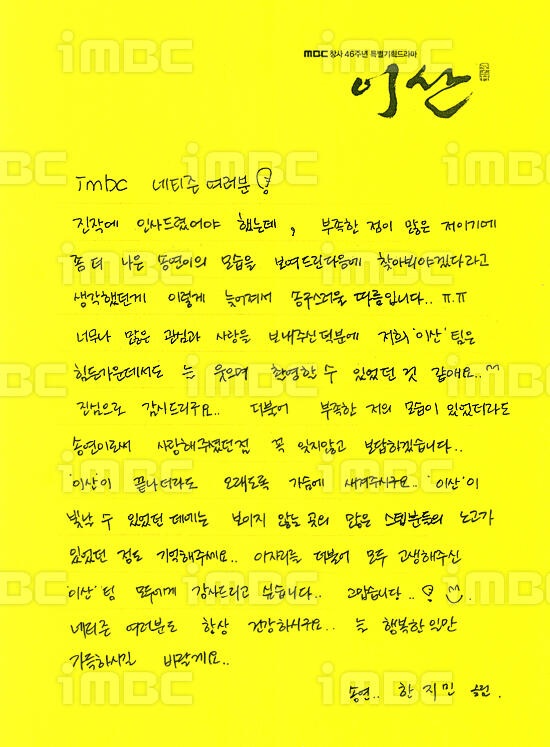 MBC 창사 46주년 특별기획드라마
이산
imbc 네티즌 여러분!
진작에 인사드렸어야 했는데, 부족한 점이 많은 저이기에
좀 더 나은 송연이의 모습을 보여드린다음에 찾아봐야겠다라고
생각했던게 이렇게 늦어져서 송구스러울 따름입니다.. ㅠ.ㅠ
너무나 많은 관심과 사랑을 보내주신 덕분에 저희 '이산'팀은
힘든가운데서도 늘 웃으며 촬영할 수 있었던 것 같애요..^^
진심으로 감사드리구요.. 더불어 부족한 저의 모습이 있었더라도
송연이로써 사랑해주셨던점 꼭 잊지않고 보답하겠습니다..
'이산'이 끝나더라도 오래도록 가슴에 새겨주시구요.. '이산'이
빛날 수 있었던 데에는 보이지 않는 곳의 많은 스텝분들의 노고가
있었던 점도 기억해주세요.. 이자리를 더불어 모두 고생해주신
'이산'팀 모두에게 감사드리고 싶습니다.. 고맙습니다..!
네티즌 여러분도 항상 건강하시구요.. 늘 행복한 일만
가득하시길 바랄게요..
송연.. 한지민 드림.